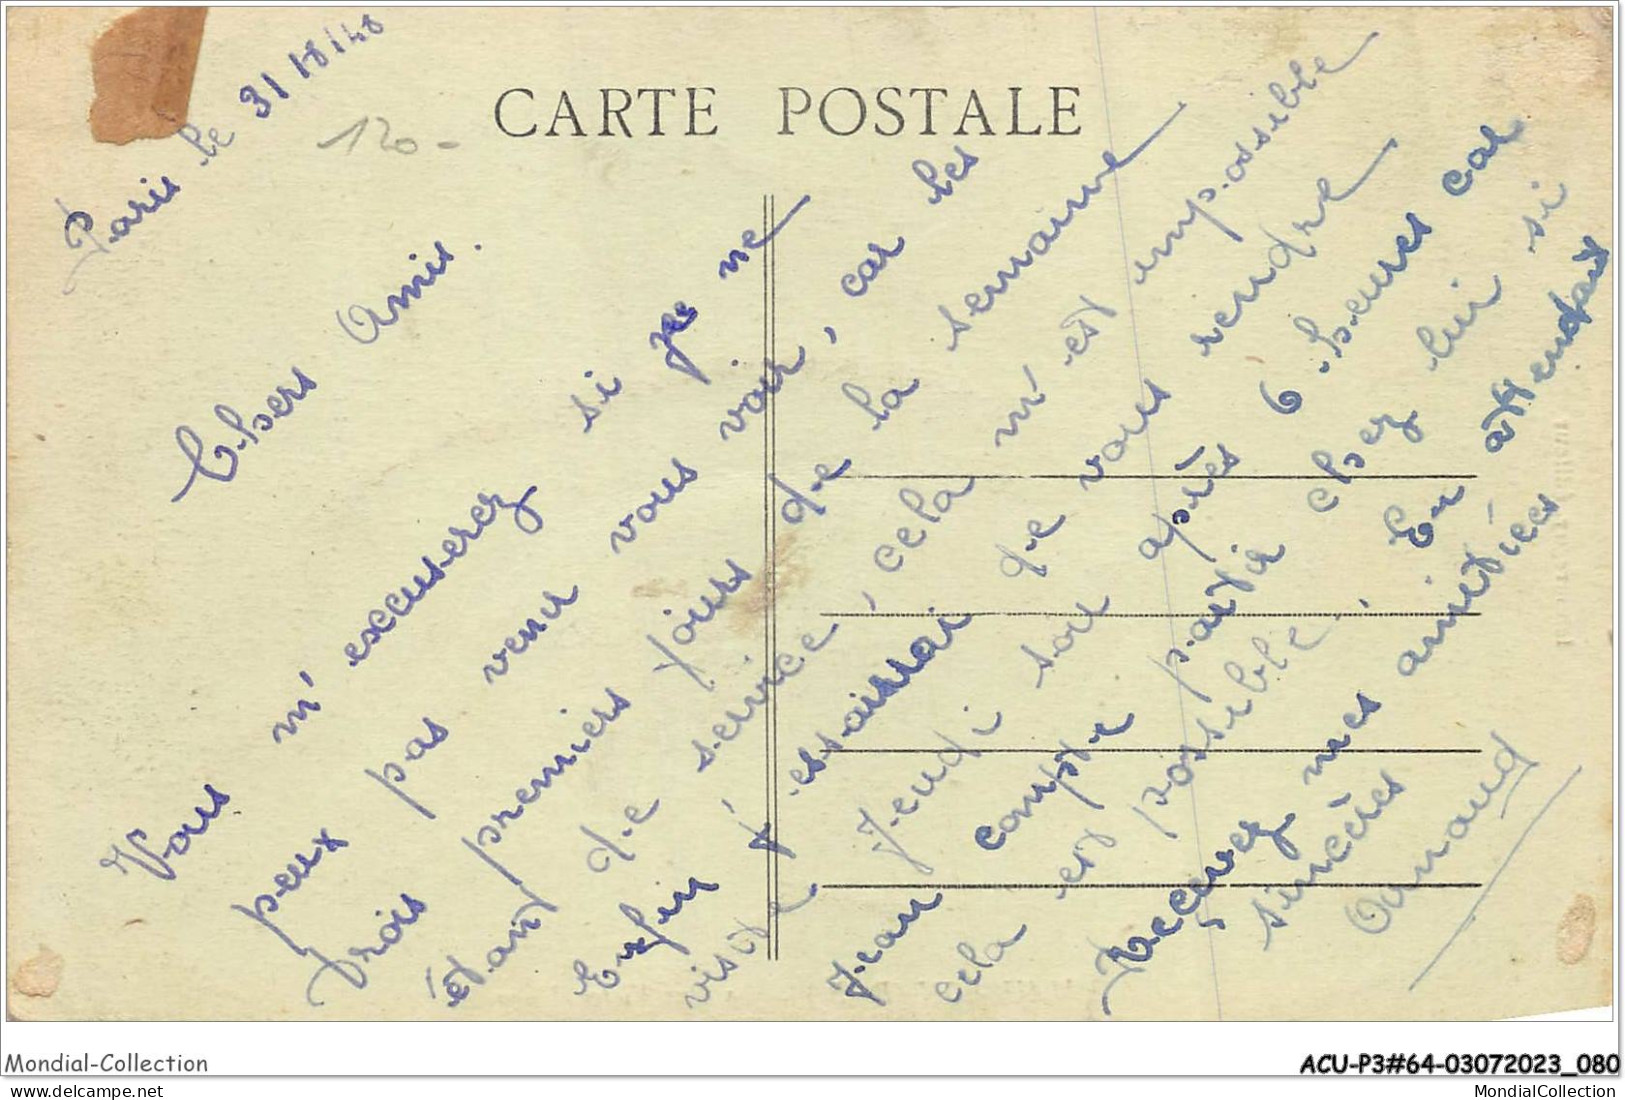 CARTE POSTALE
120-
Paris le 31/10/40
Chers Amis.
Vous m'excuserez si je ne
peux pas venir vous voir, car les
trois premiers jours de la semaine
étant de service, cela m'est impossible
Enfin j'essaissai de vous rendre
visite jeudi soir après 6 heures car
Jean compte partir chez lui si
cela est possible. En attendant
Recevez mes amitiées
sincères
Armaud
Mondial-Collection
ACU-P3#64-03072023_080
MondialCollection